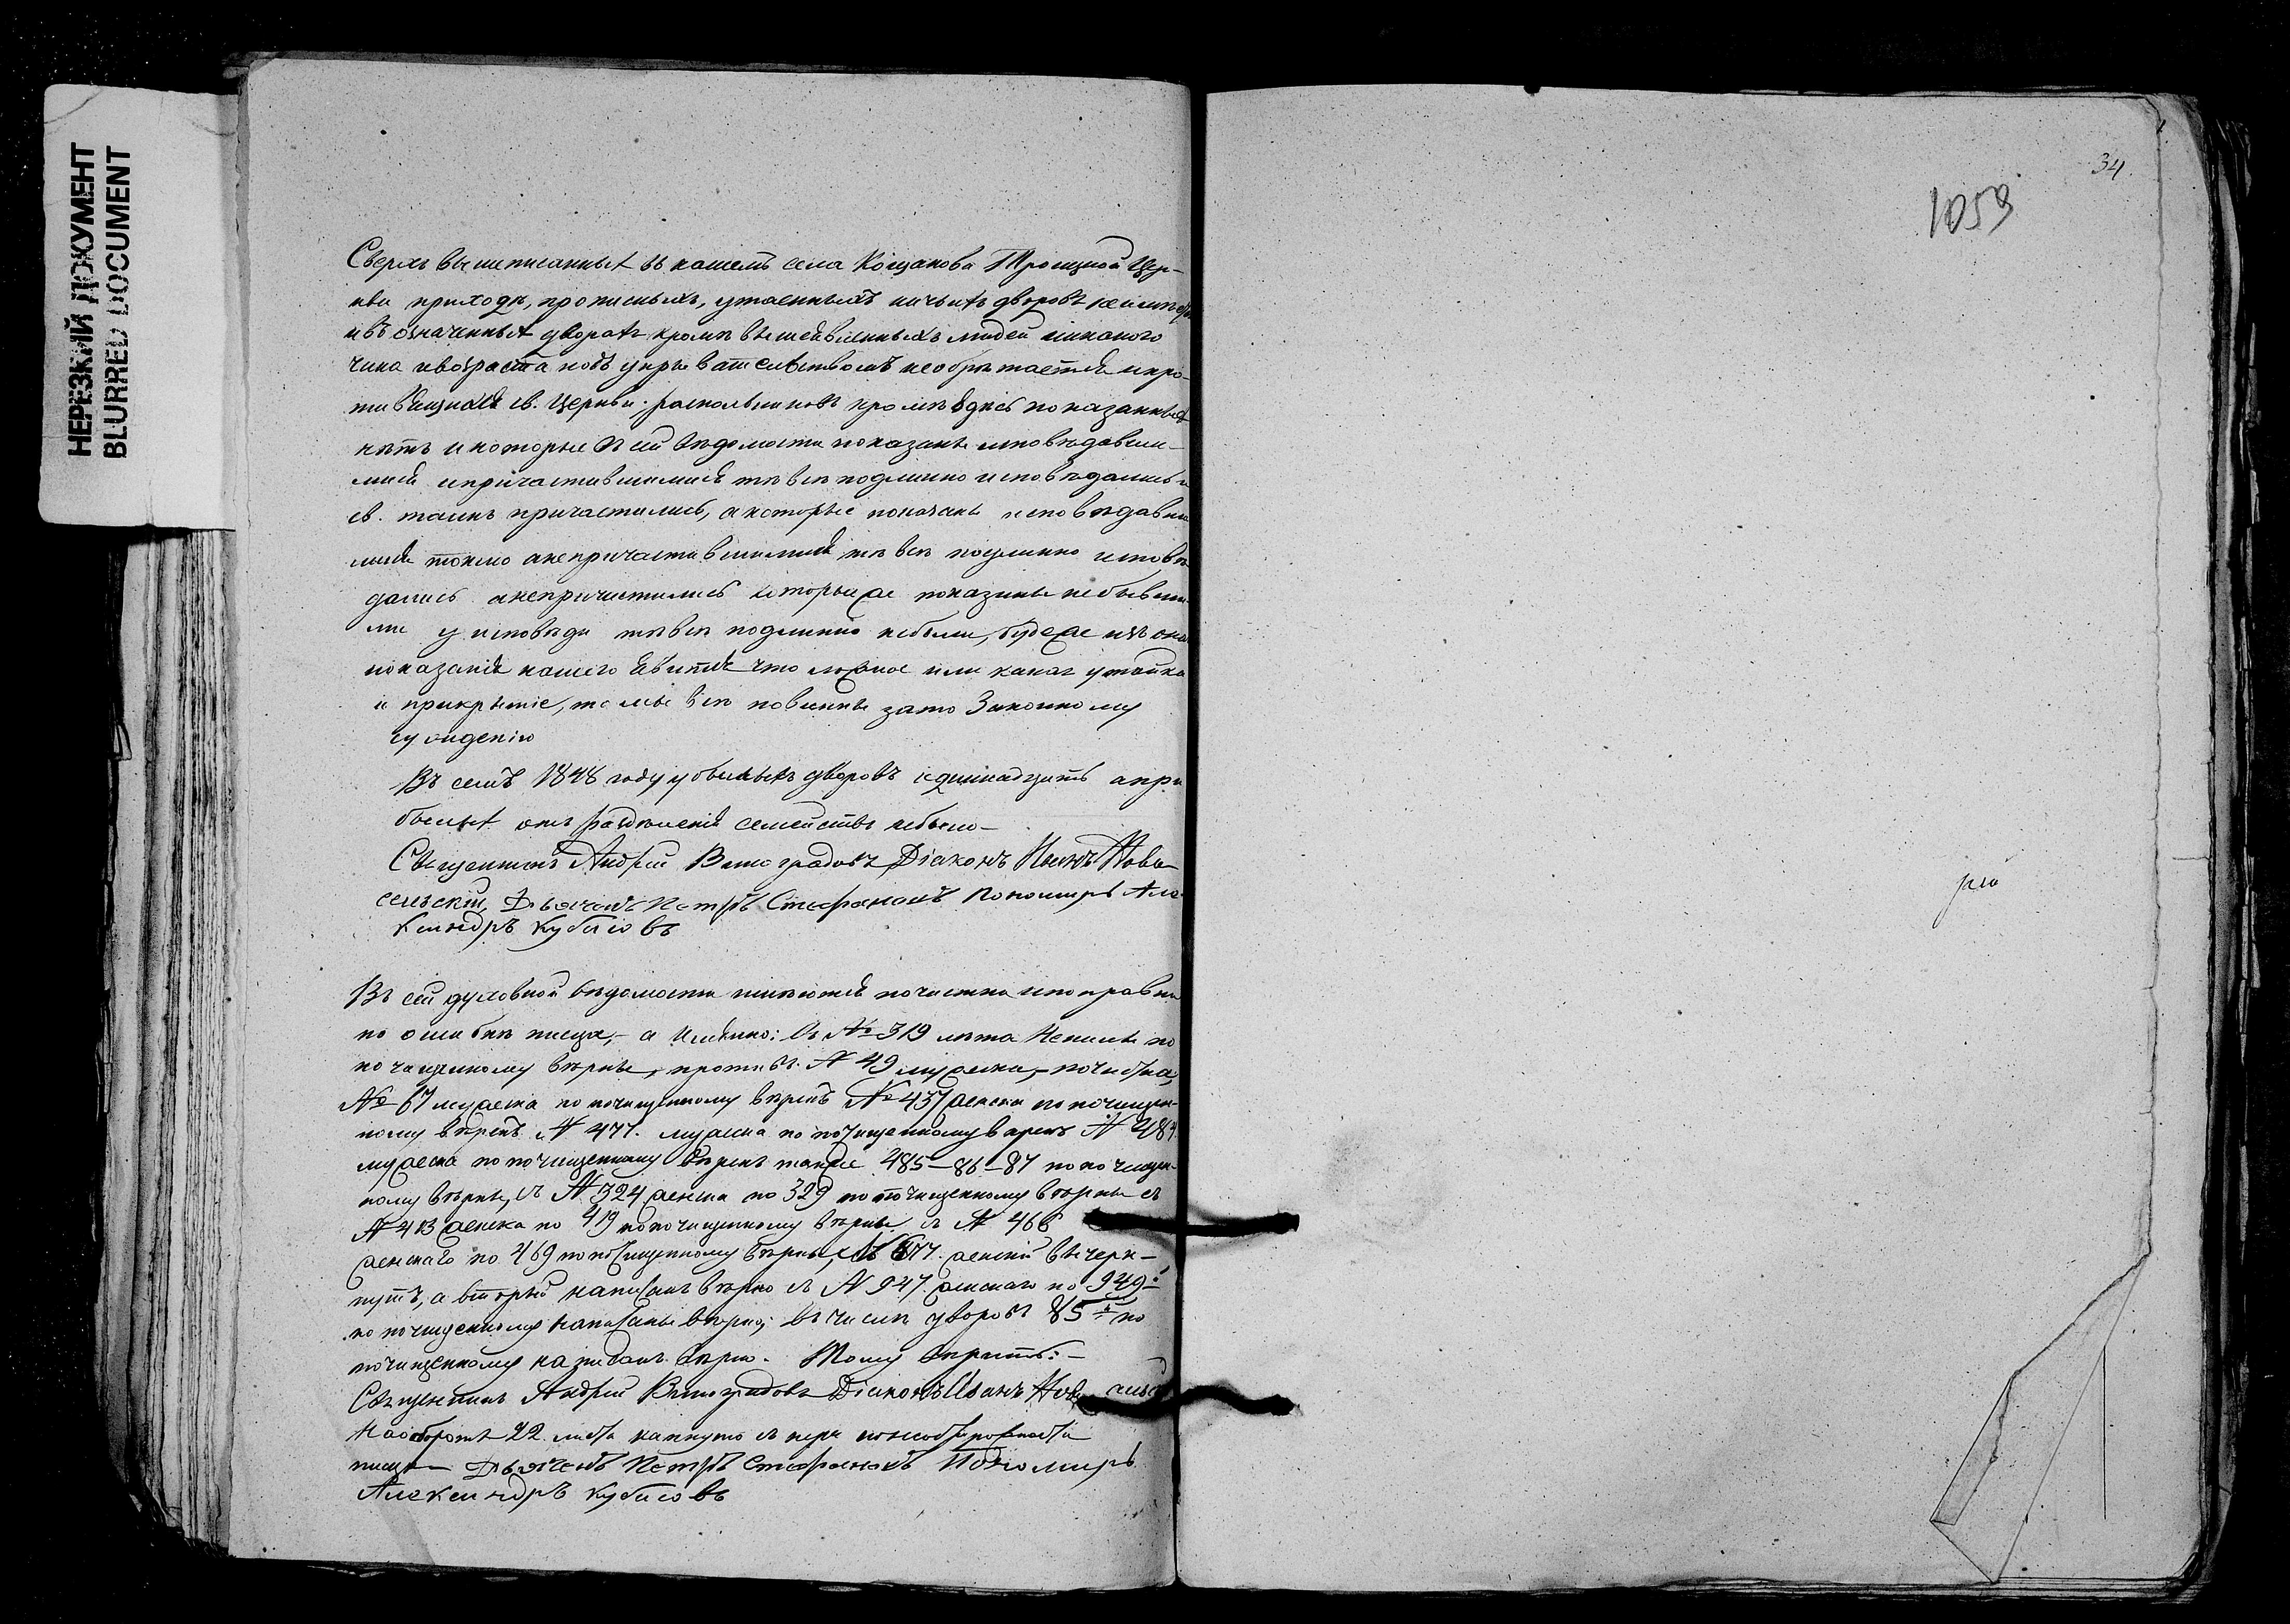 НЕРЕЗКИЙ ДОКУМЕНТ
BLURRED DOCUMENT
Сверхъ вышеписанныхъ въ нашемъ села Кощакова Троицкой Цер-
кви приходѣ, прописныхъ, утаенныхъ ничьихъ дворовъ
и въ означенныхъ дворахъ кромѣ вышеявленныхъ людей никакого
чина и возраста подъ укрывательствомъ необрѣтается и про-
тивящихся св. Церкви раскольниковъ кромѣ здѣсь показанныхъ
нѣтъ и которые въ сей вѣдомости показаны исповѣдавши-
мися и причастившимися тѣ всѣ подлинно исповѣдались и
св. таинъ причастились, а которые показаны исповѣдавши
мися токмо а непричастившимися, тѣ всѣ подлинно исповѣ
дались а непричастились которые же показаны небывши-
ми у исповѣди тѣ всѣ подлинно небыли, буде же изъ онаго
показанія нашего явится что ложное или какая утайка
и прикрытіе, то мы всѣ повинны за то Законному
сужденію
Въ семъ 1848 году убылыхъ дворовъ одинадцать а при
былыхъ отъ раздѣленія семействъ небыло-
Священникъ Андрей Виноградовъ Діаконъ Иванъ Ново-
сельскій, Дьячекъ Петръ Стефановъ Пономарь Але-
ксандръ
Въ сей духовной вѣдомости имѣются почистки и поправки
по ошибкѣ писца, - а именно: въ № 319 лѣта по
почищенному вѣрны, противъ № 49 мужеска, - почистка,
№ 67 мужеска по почищенному вѣренъ № 437 женска по почищен-
ному вѣренъ № 477. мужеска по почищенному вѣренъ №
мужеска по почищенному вѣренъ также 485-86-87 по почищен-
ному вѣрны, съ № 324 женска по 329 по почищенному вѣрны съ
№ 413 женска по 419 по почищенному вѣрны съ № 466
женскаго по 469 по почищенному вѣрны, женскій вычерк-
нутъ, а вторый написанъ вѣрно съ № 947. женскаго по 949-й
по почищенному написаны вѣрно; въ числѣ дворовъ 85-й по
почищенному написанъ вѣрно. Тому вѣрить:-
Священникъ Андрей Виноградовъ Діаконъ Иванъ
На оборотѣ 22 листа капнуто съ пера по неосторожности
писца - Дьячекъ Петръ Стефановъ Пономарь
Александръ
34.
1059